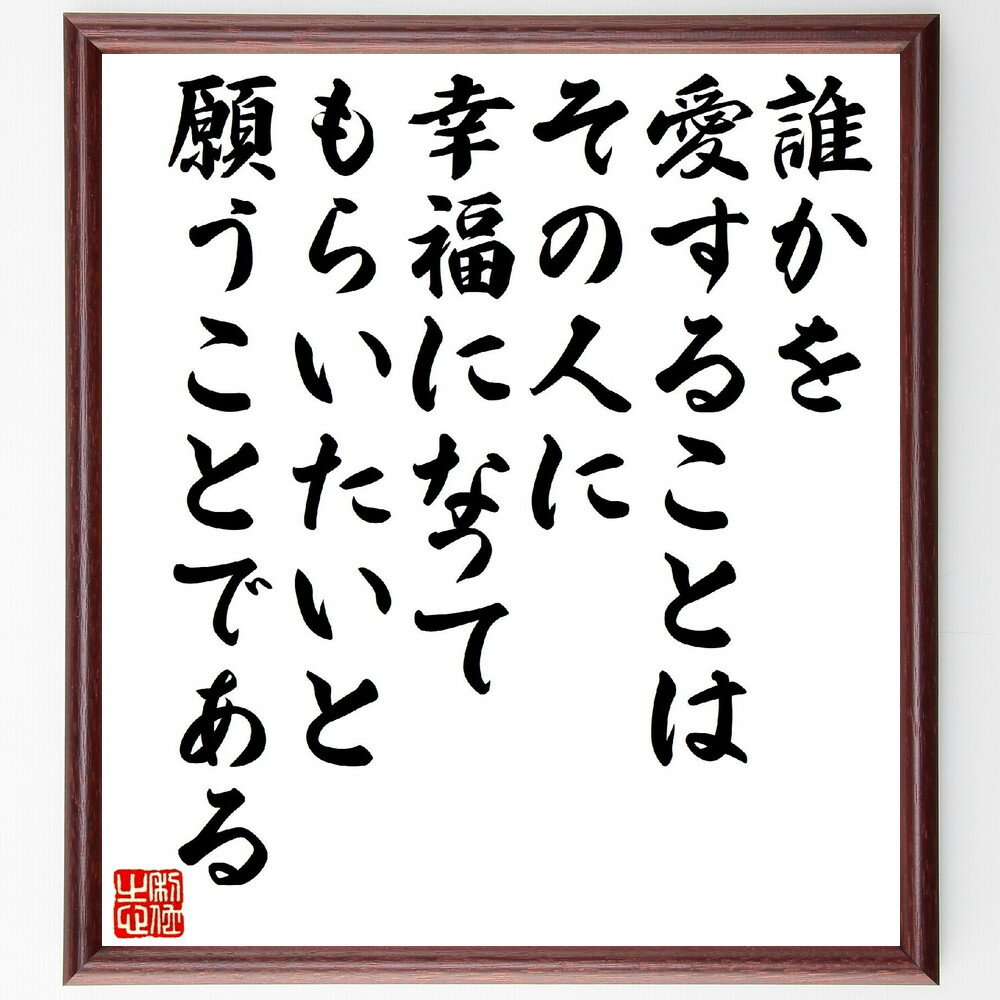 誰かを
愛することは
その人に
幸福になって
もらいたいと
願うことである